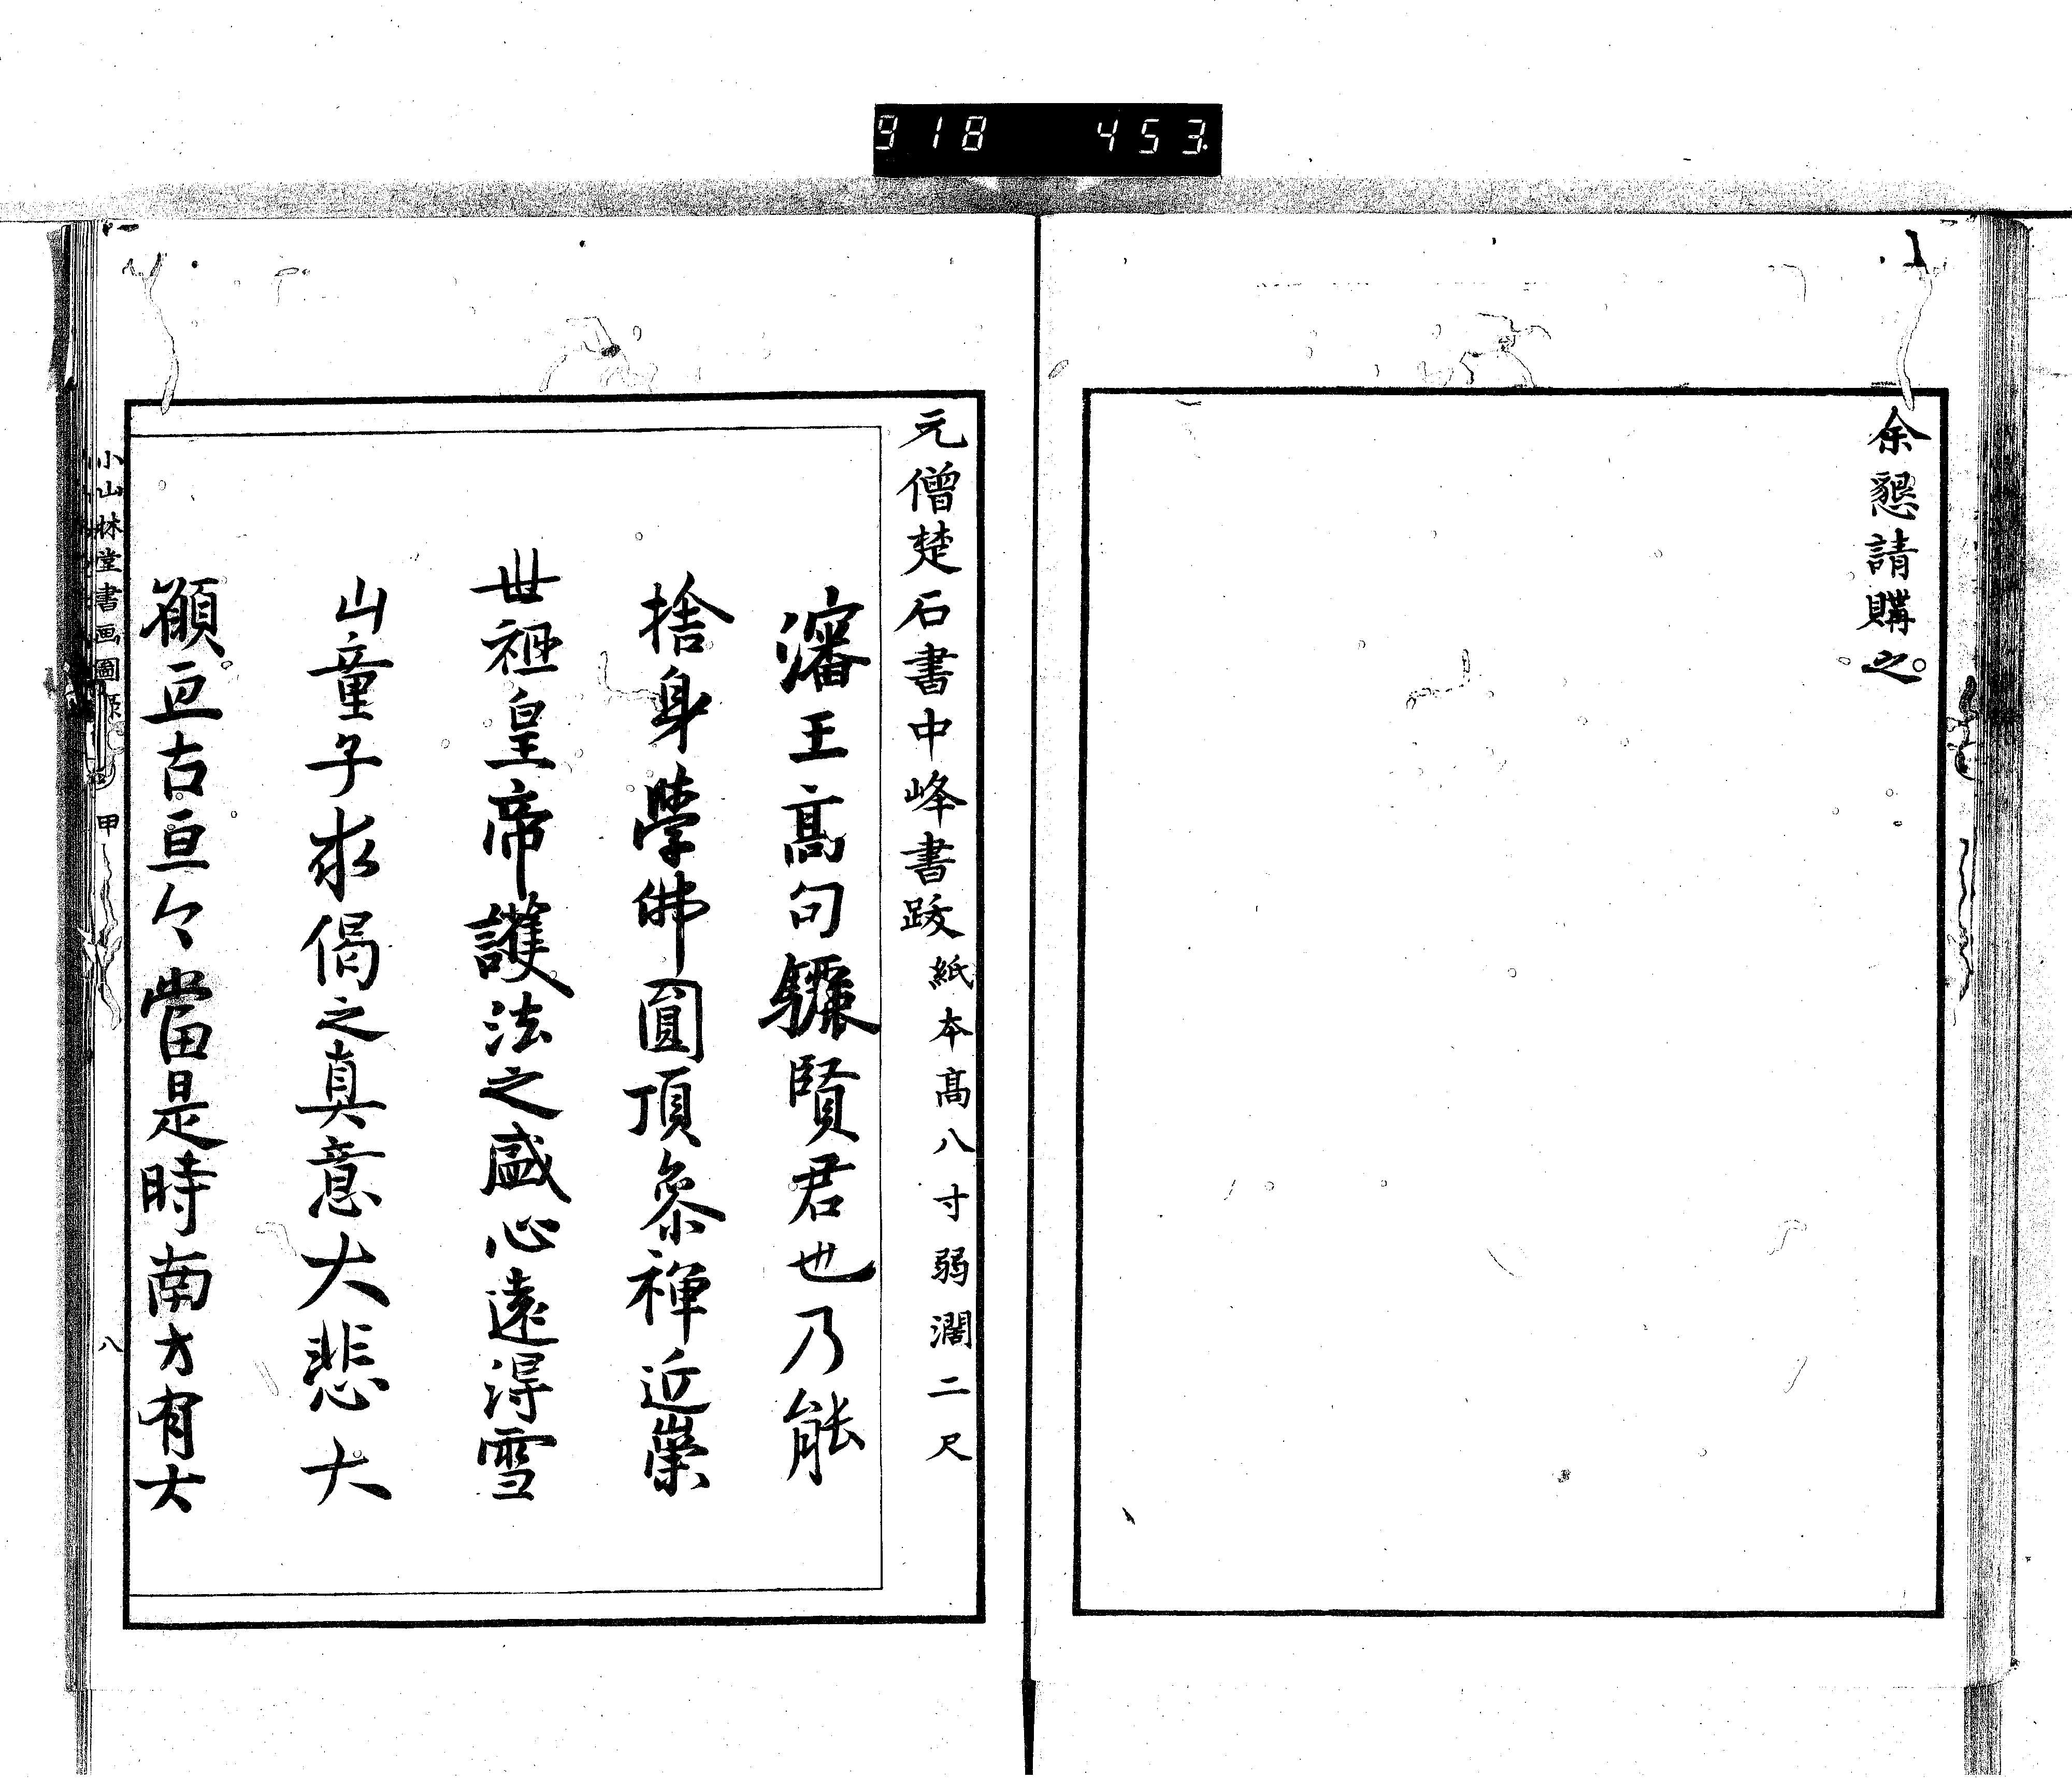 918 453
余懇請購之
元僧楚石書中峰書跋 紙本高八寸弱濶二尺
瀋王高句驪賢君也乃能
捨身學佛圓頂叅禅近崇
世祖皇帝護法之盛心遠得雪
山童子求偈之真意大悲大
願亘古亘今當是時南方有大
小山林堂書画圖録 甲 八